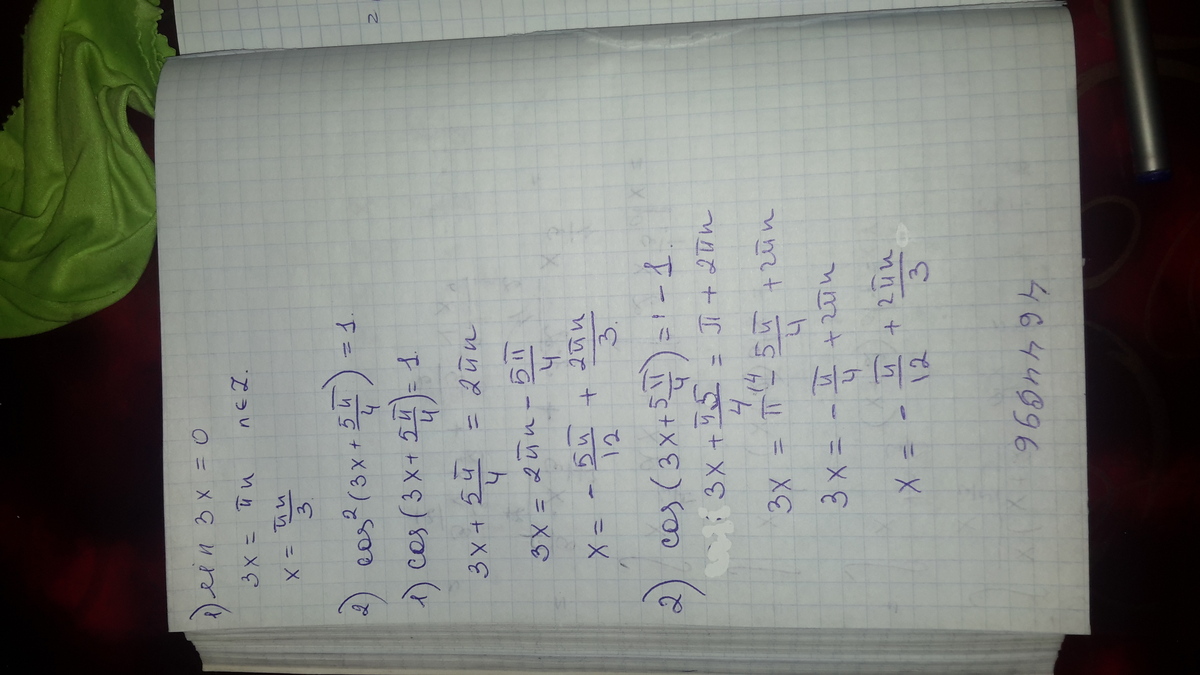 1) sin 3x = 0
3x = πn n∈Z.
x = πn/3.
2) cos²(3x + 5π/4) = 1.
1) cos(3x + 5π/4) = 1.
3x + 5π/4 = 2πn
3x = 2πn - 5π/4
x = - 5π/12 + 2πn/3.
2) cos(3x + 5π/4) = - 1.
3x + π5/4 = π + 2πn
3x = π(4 - 5π/4 + 2πn
3x = - π/4 + 2πn
x = - π/12 + 2πn/3
4644996